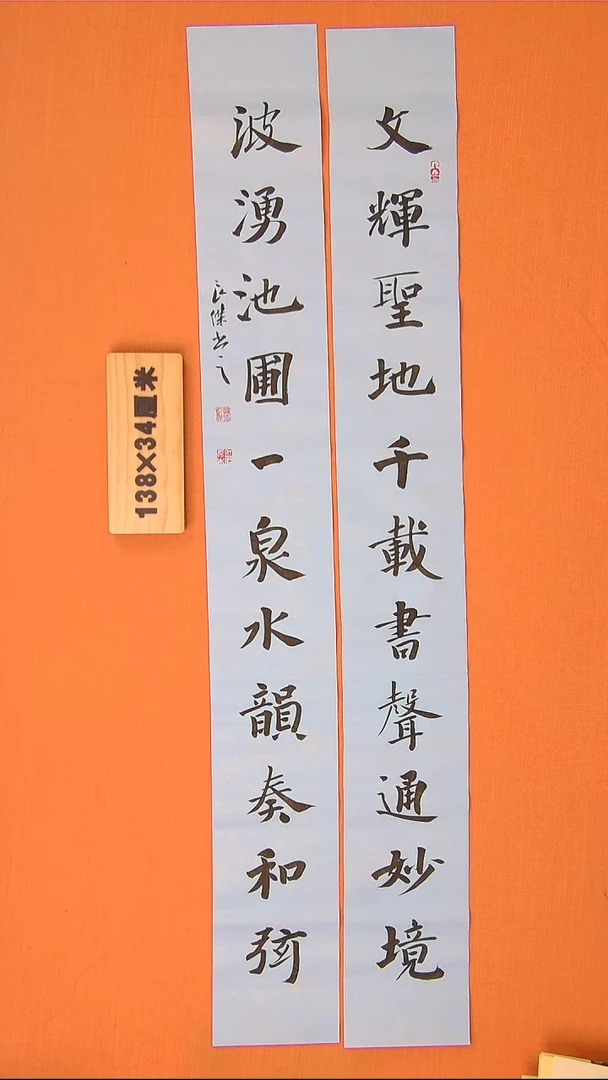 文輝聖地千載書聲通妙境
波湧池圃一泉水韻奏和弦
138×34厘米